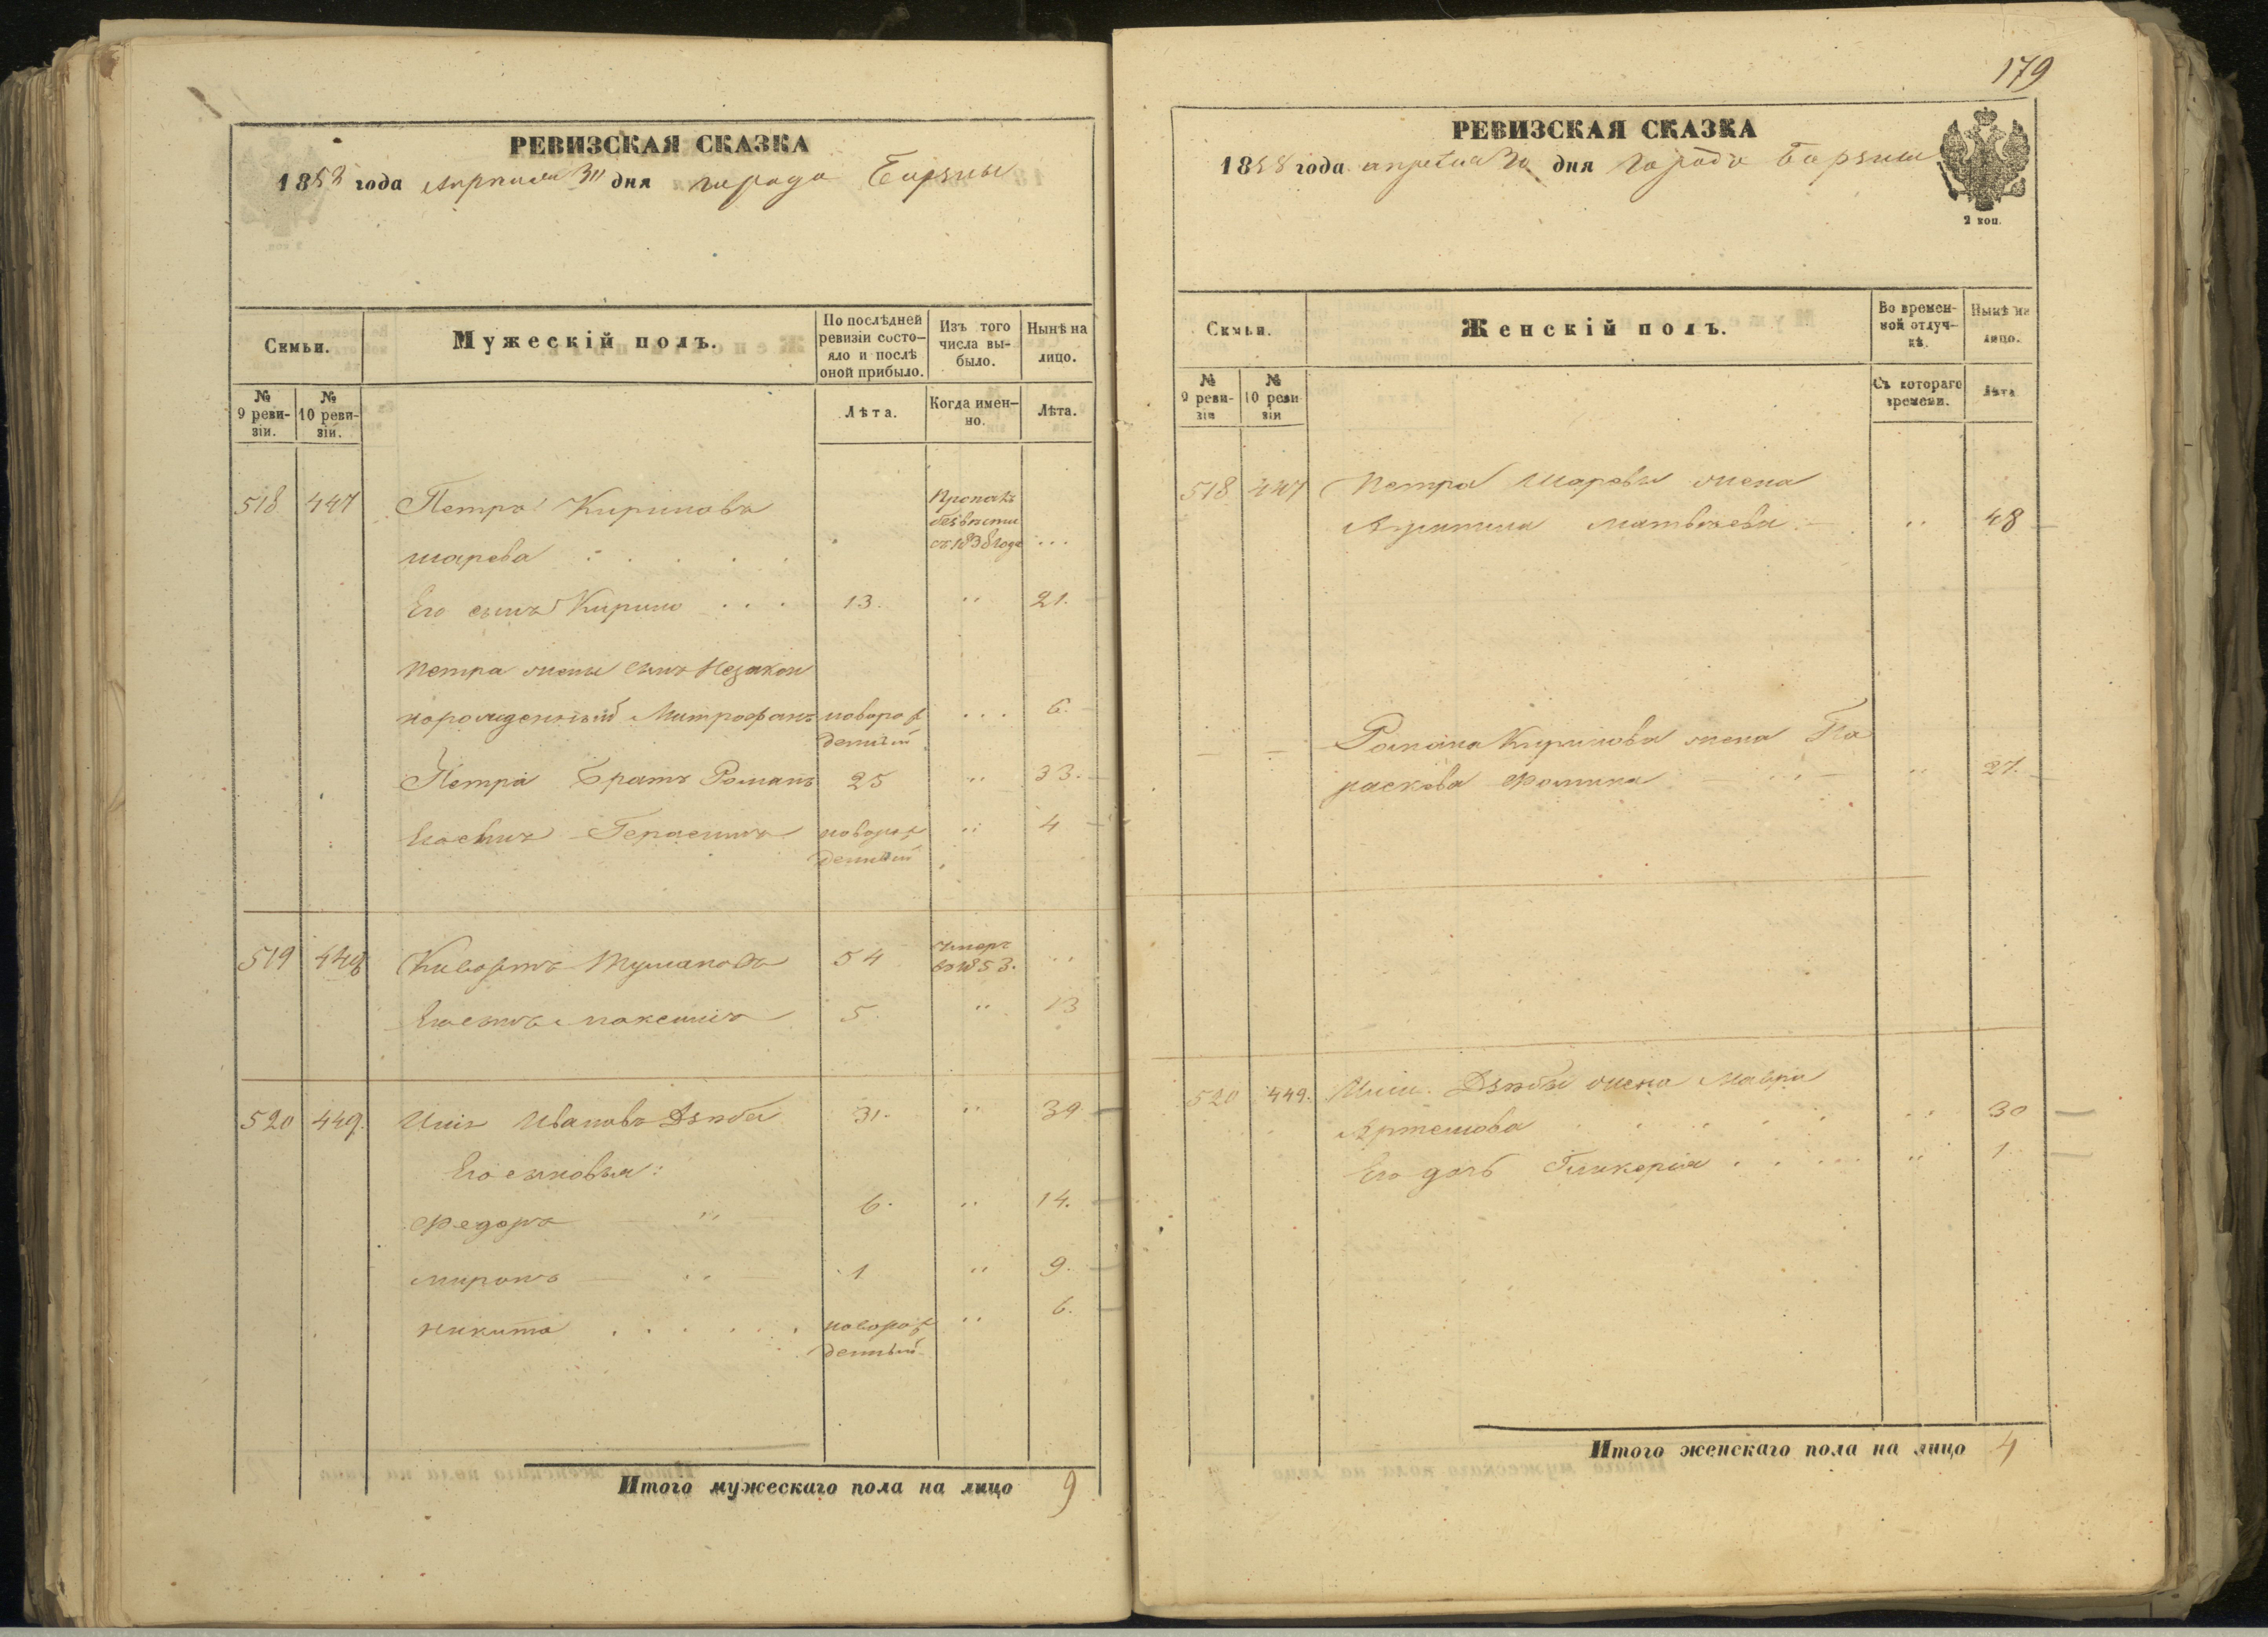 РЕВИЗСКАЯ СКАЗКА
1858 года Апреля 30 дня города Борзны
Семьи.
Мужескій полъ.
По послѣдней ревизіи состояло и послѣ оной прибыло.
Изъ того числа выбыло.
Нынѣ на лицо.
№ 9 ревизіи.
№ 10 ревизіи.
Лѣта.
Когда именно.
Лѣта.
518 447 Петръ Кириловъ Пропалъ
безвести
шарева съ 1838 года ...
Его сынъ Кирило . . . 13. " 21.
Петра жены сынъ Незакон
норожденный Митрофанъ новорож ... 6.
денный
Петра Братъ Романъ 25 " 33.
Его сынъ Герасимъ новорож " 4
денный
519 448 Тумановъ 54 умеръ
въ 1853. "
Его сынъ Максимъ 5. " 13
520 449. Ивановъ Дзюба 31. " 39
Его сыновья:
Федоръ " 6. " 14.
Миронъ " 1 " 9.
Никита . . . . . . новорож " 6.
денный
Итого мужескаго пола на лицо 9
179
РЕВИЗСКАЯ СКАЗКА
1858 года апреля 30 дня города Борзны
2 коп.
Семьи.
Женскій полъ.
Во временной отлучкѣ.
Нынѣ на лицо.
№ 9 ревизіи
№ 10 ревизіи
Съ котораго времени.
Лѣта
518 447 Петра Шаревы жена
Матвеева " 48
Романа Кирилова жена Па
раскова Фомина " 27.
520 449. Дзюбы жена Мавра
Артемова " 30
Его дочь Гликерія . . . . . " 1
Итого женскаго пола на лицо 4